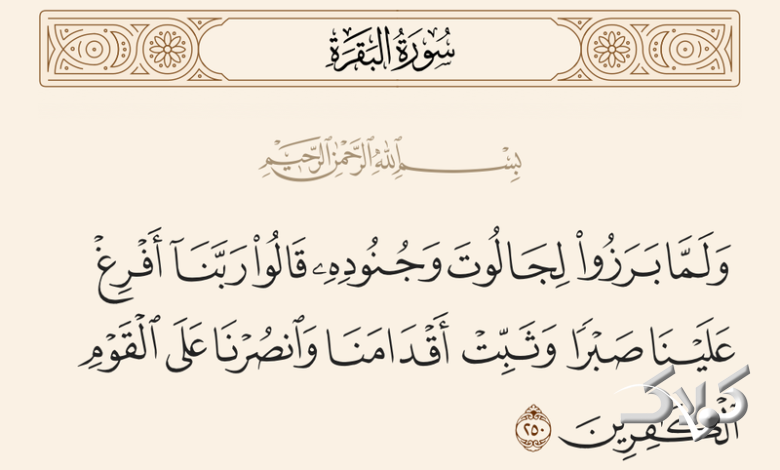 سُورَةُ البَقَرَةِ
بِسْمِ ٱللَّهِ ٱلرَّحْمَٰنِ ٱلرَّحِيمِ
وَلَمَّا بَرَزُوا۟ لِجَالُوتَ وَجُنُودِهِۦ قَالُوا۟ رَبَّنَآ أَفْرِغْ
عَلَيْنَا صَبْرًا وَثَبِّتْ أَقْدَامَنَا وَٱنصُرْنَا عَلَى ٱلْقَوْمِ
ٱلْكَٰفِرِينَ ٢٥٠